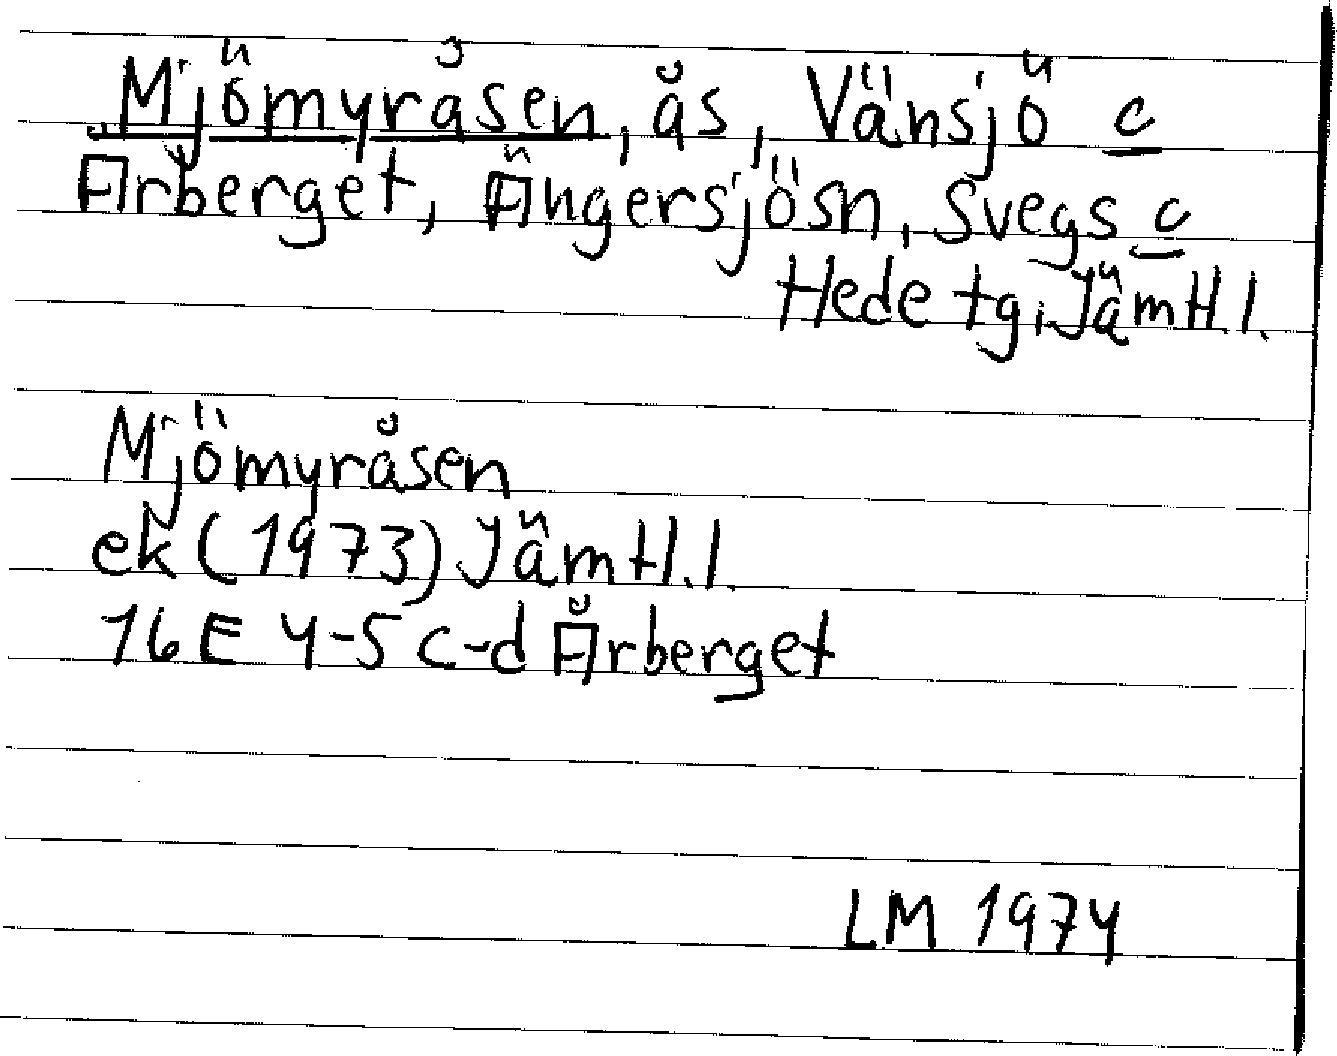 Mjömyråsen, ås, Vänsjö c
Årberget, Ängersjösn, Svegs c
Hede tg, Jämtl.l.
Mjömyråsen
ek (1973) Jämtl.l.
16E 4-5 c-d Årberget
LM 1974